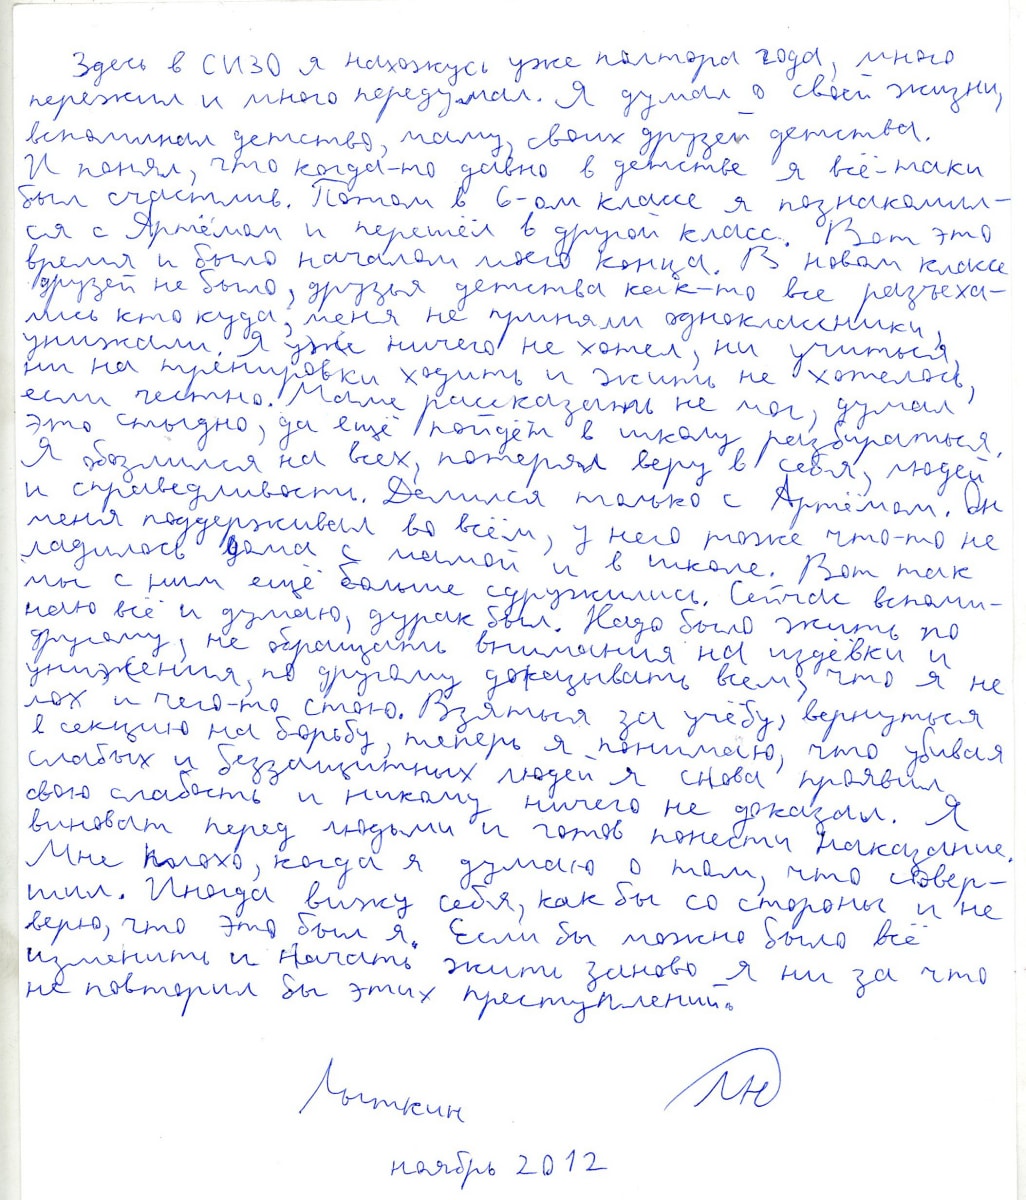 Здесь в СИЗО я нахожусь уже полтора года, много
пережил и много передумал. Я думал о своей жизни,
вспоминал детство, маму, своих друзей детства.
И понял, что когда-то давно в детстве я всё-таки
был счастлив. Потом в 6-ом классе я познакомил-
ся с Артёмом и перешёл в другой класс. Вот это
время и было началом моего конца. В новом классе
друзей не было, друзья детства как-то все разъеха-
лись кто куда, меня не приняли одноклассники,
унижали. Я уже ничего не хотел, ни учиться,
ни на тренировки ходить и жить не хотелось,
если честно. Маме рассказать не мог, думал
это стыдно, да ещё пойдёт в школу разбираться.
Я обозлился на всех, потерял веру в себя, людей
и справедливости. Делился только с Артёмом. Он
меня поддерживал во всём, у него тоже что-то не
ладилось дома с мамой и в школе. Вот так
мы с ним ещё больше сдружились. Сейчас вспоми-
наю всё и думаю, дурак был. Надо было жить по
другому, не обращать внимания на издёвки и
унижения, по другому доказывать всем, что я не
лох и чего-то стою. Взяться за учёбу, вернуться
в секцию на борьбу, теперь я понимаю, что убивая
слабых и беззащитных людей я снова проявил
свою слабость и никому ничего не доказал. Я
виноват перед людьми и готов понести наказание.
Мне плохо, когда я думаю о том, что совер-
шил. Иногда вижу себя, как бы со стороны и не
верю, что это был я. Если бы можно было всё
изменить и начать жить заново я ни за что
не повторил бы этих преступлений.
Лыткин ЛН
ноябрь 2012